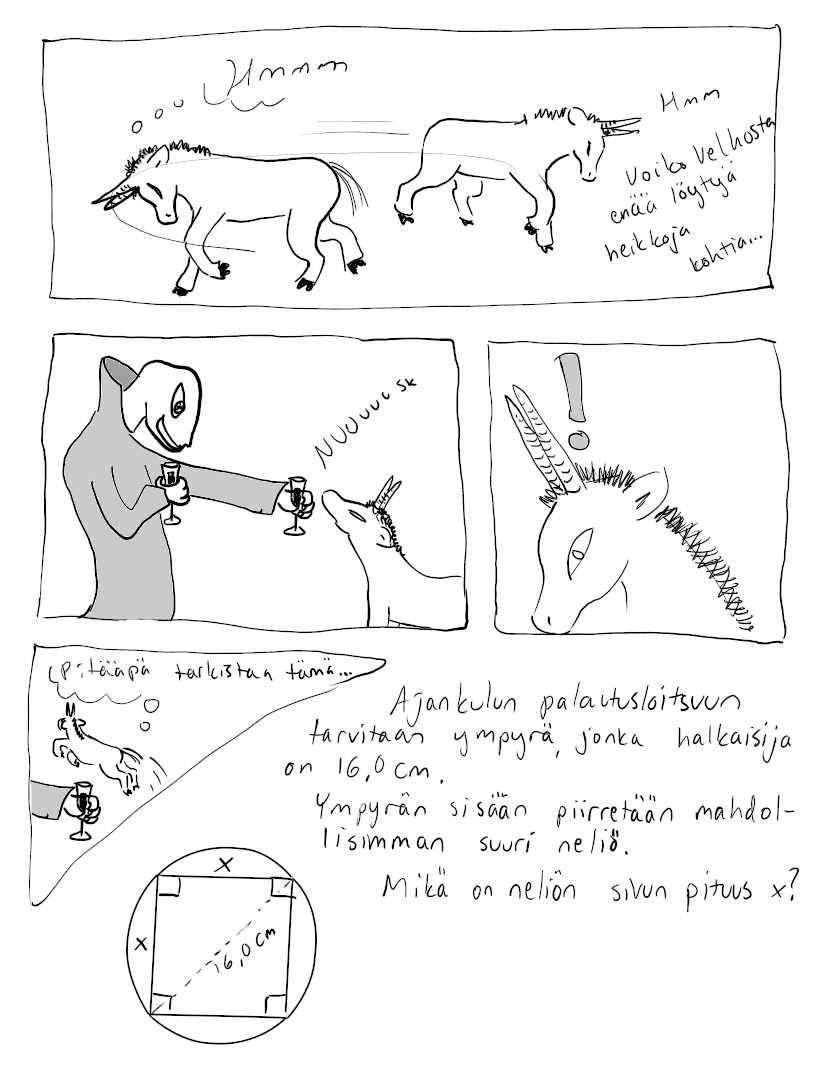 Hmmm
Hmm
Voiko Velhosta
enää löytyjä
heikkoja
kohtia...
NUUUUUUSK
!
Pitääpä tarkistaa tämä...
Ajankulun palautusloitsuun
tarvitaan ympyrä, jonka halkaisija
on 16,0 cm.
Ympyrän sisään piirretään mahdol-
lisimman suuri neliö.
Mikä on neliön sivun pituus x?
x
x
16,0 cm